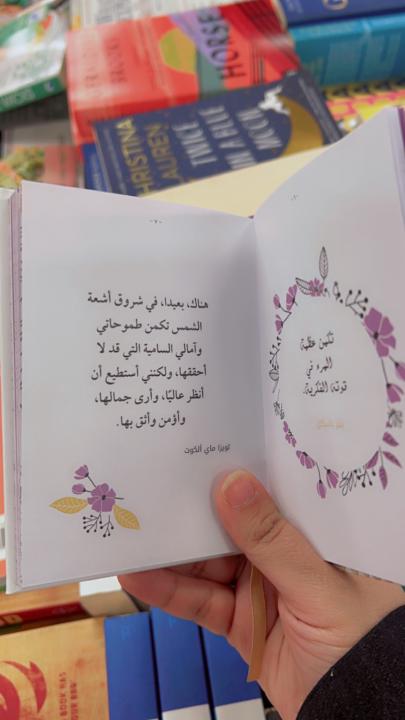 HORSE
CHRISTINA
LAUREN
TWICE
IN A BLUE
MOON
هناك، بعيدا، في شروق أشعة
الشمس تكمن طموحاتي
وآمالي السامية التي قد لا
أحققها، ولكنني أستطيع أن
أنظر عاليًا، وأرى جمالها،
وأؤمن وأثق بها.
لويزا ماي ألكوت
تكمن عظمة
المرء في
قوته الفكرية.
BOOK HAS
YOUR BBQ